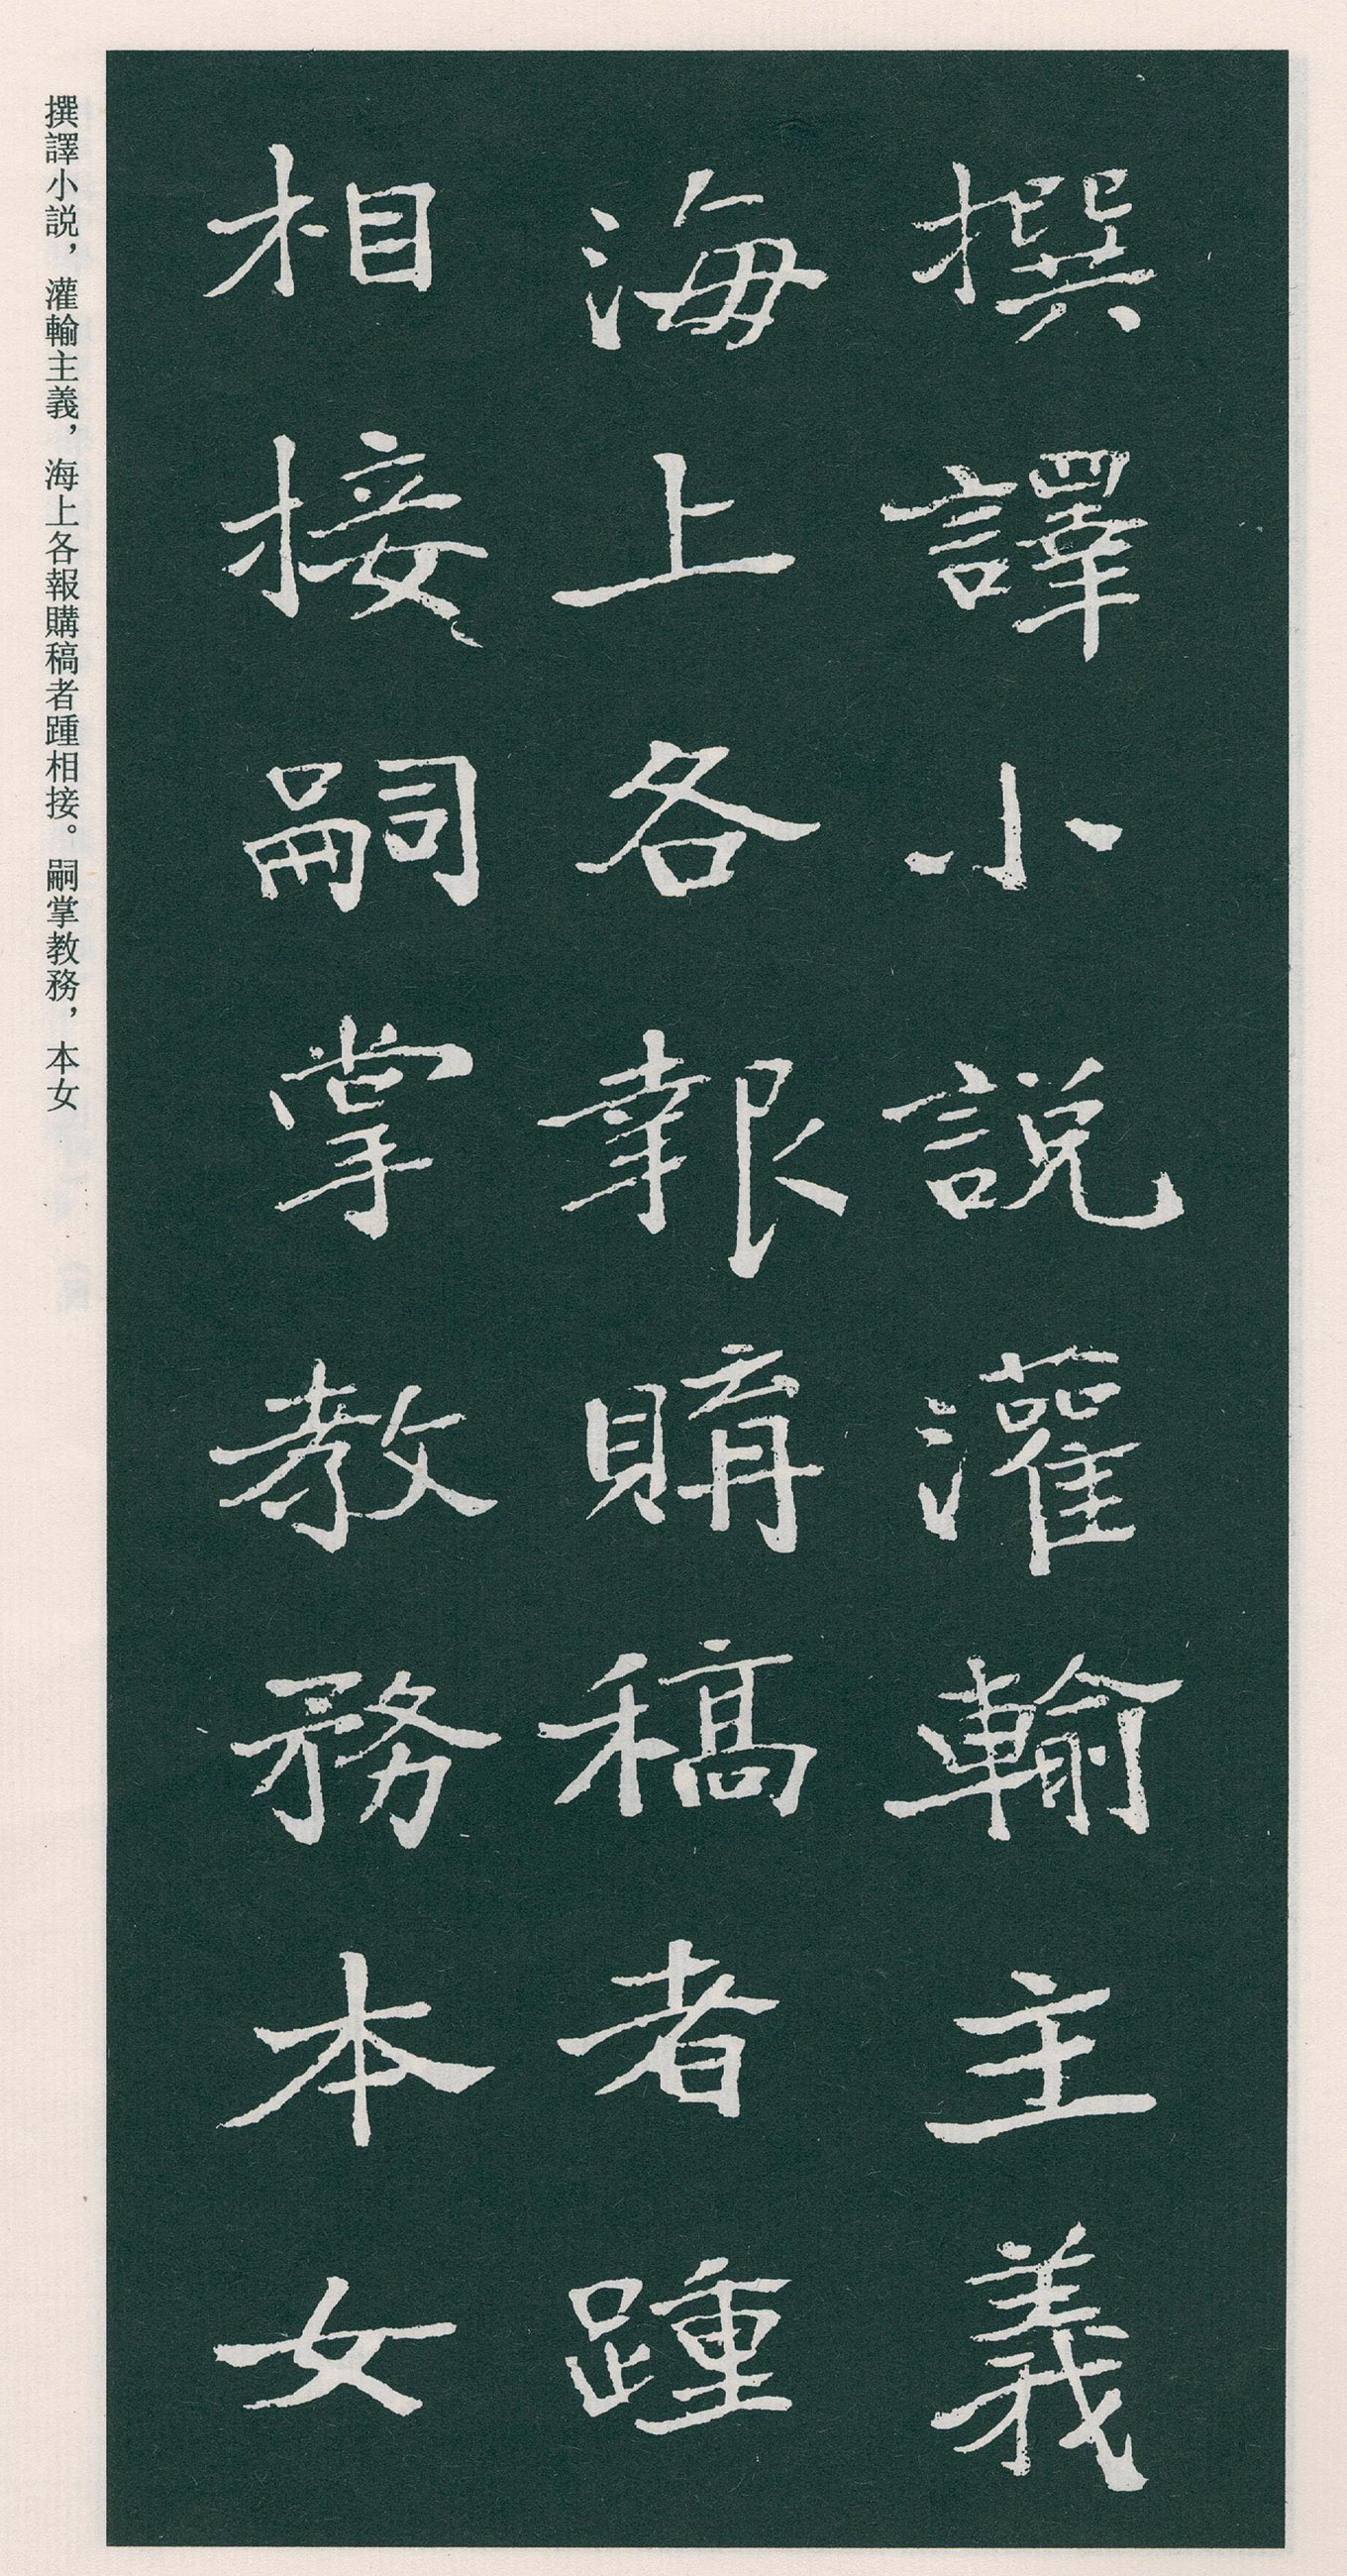 撰譯小説灌輸主義
海上各報購稿者踵
相接嗣掌教務本女
撰譯小説，灌輸主義，海上各報購稿者踵相接。嗣掌教務，本女